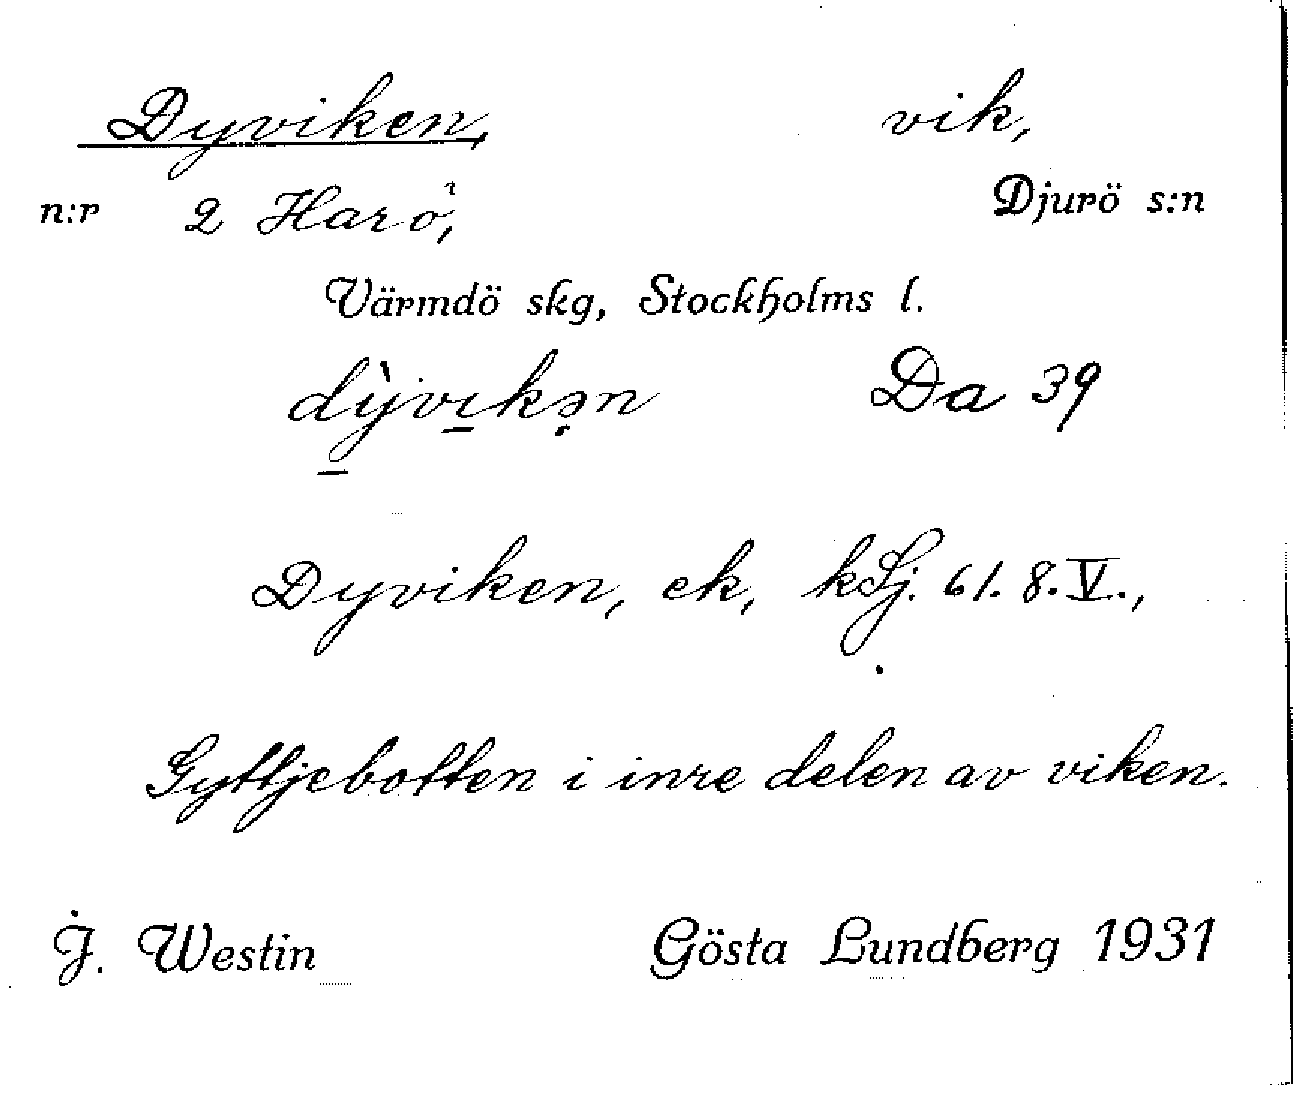 Dyviken, vik,
n:r 2 Harö, Djurö s:n
Värmdö skg, Stockholms l.
dỳ̱vɪ̱kə̣n Da 39
Dyviken, ek, kSj. 61. 8. V.,
Gyttjebotten i inre delen av viken.
J. Westin Gösta Lundberg 1931